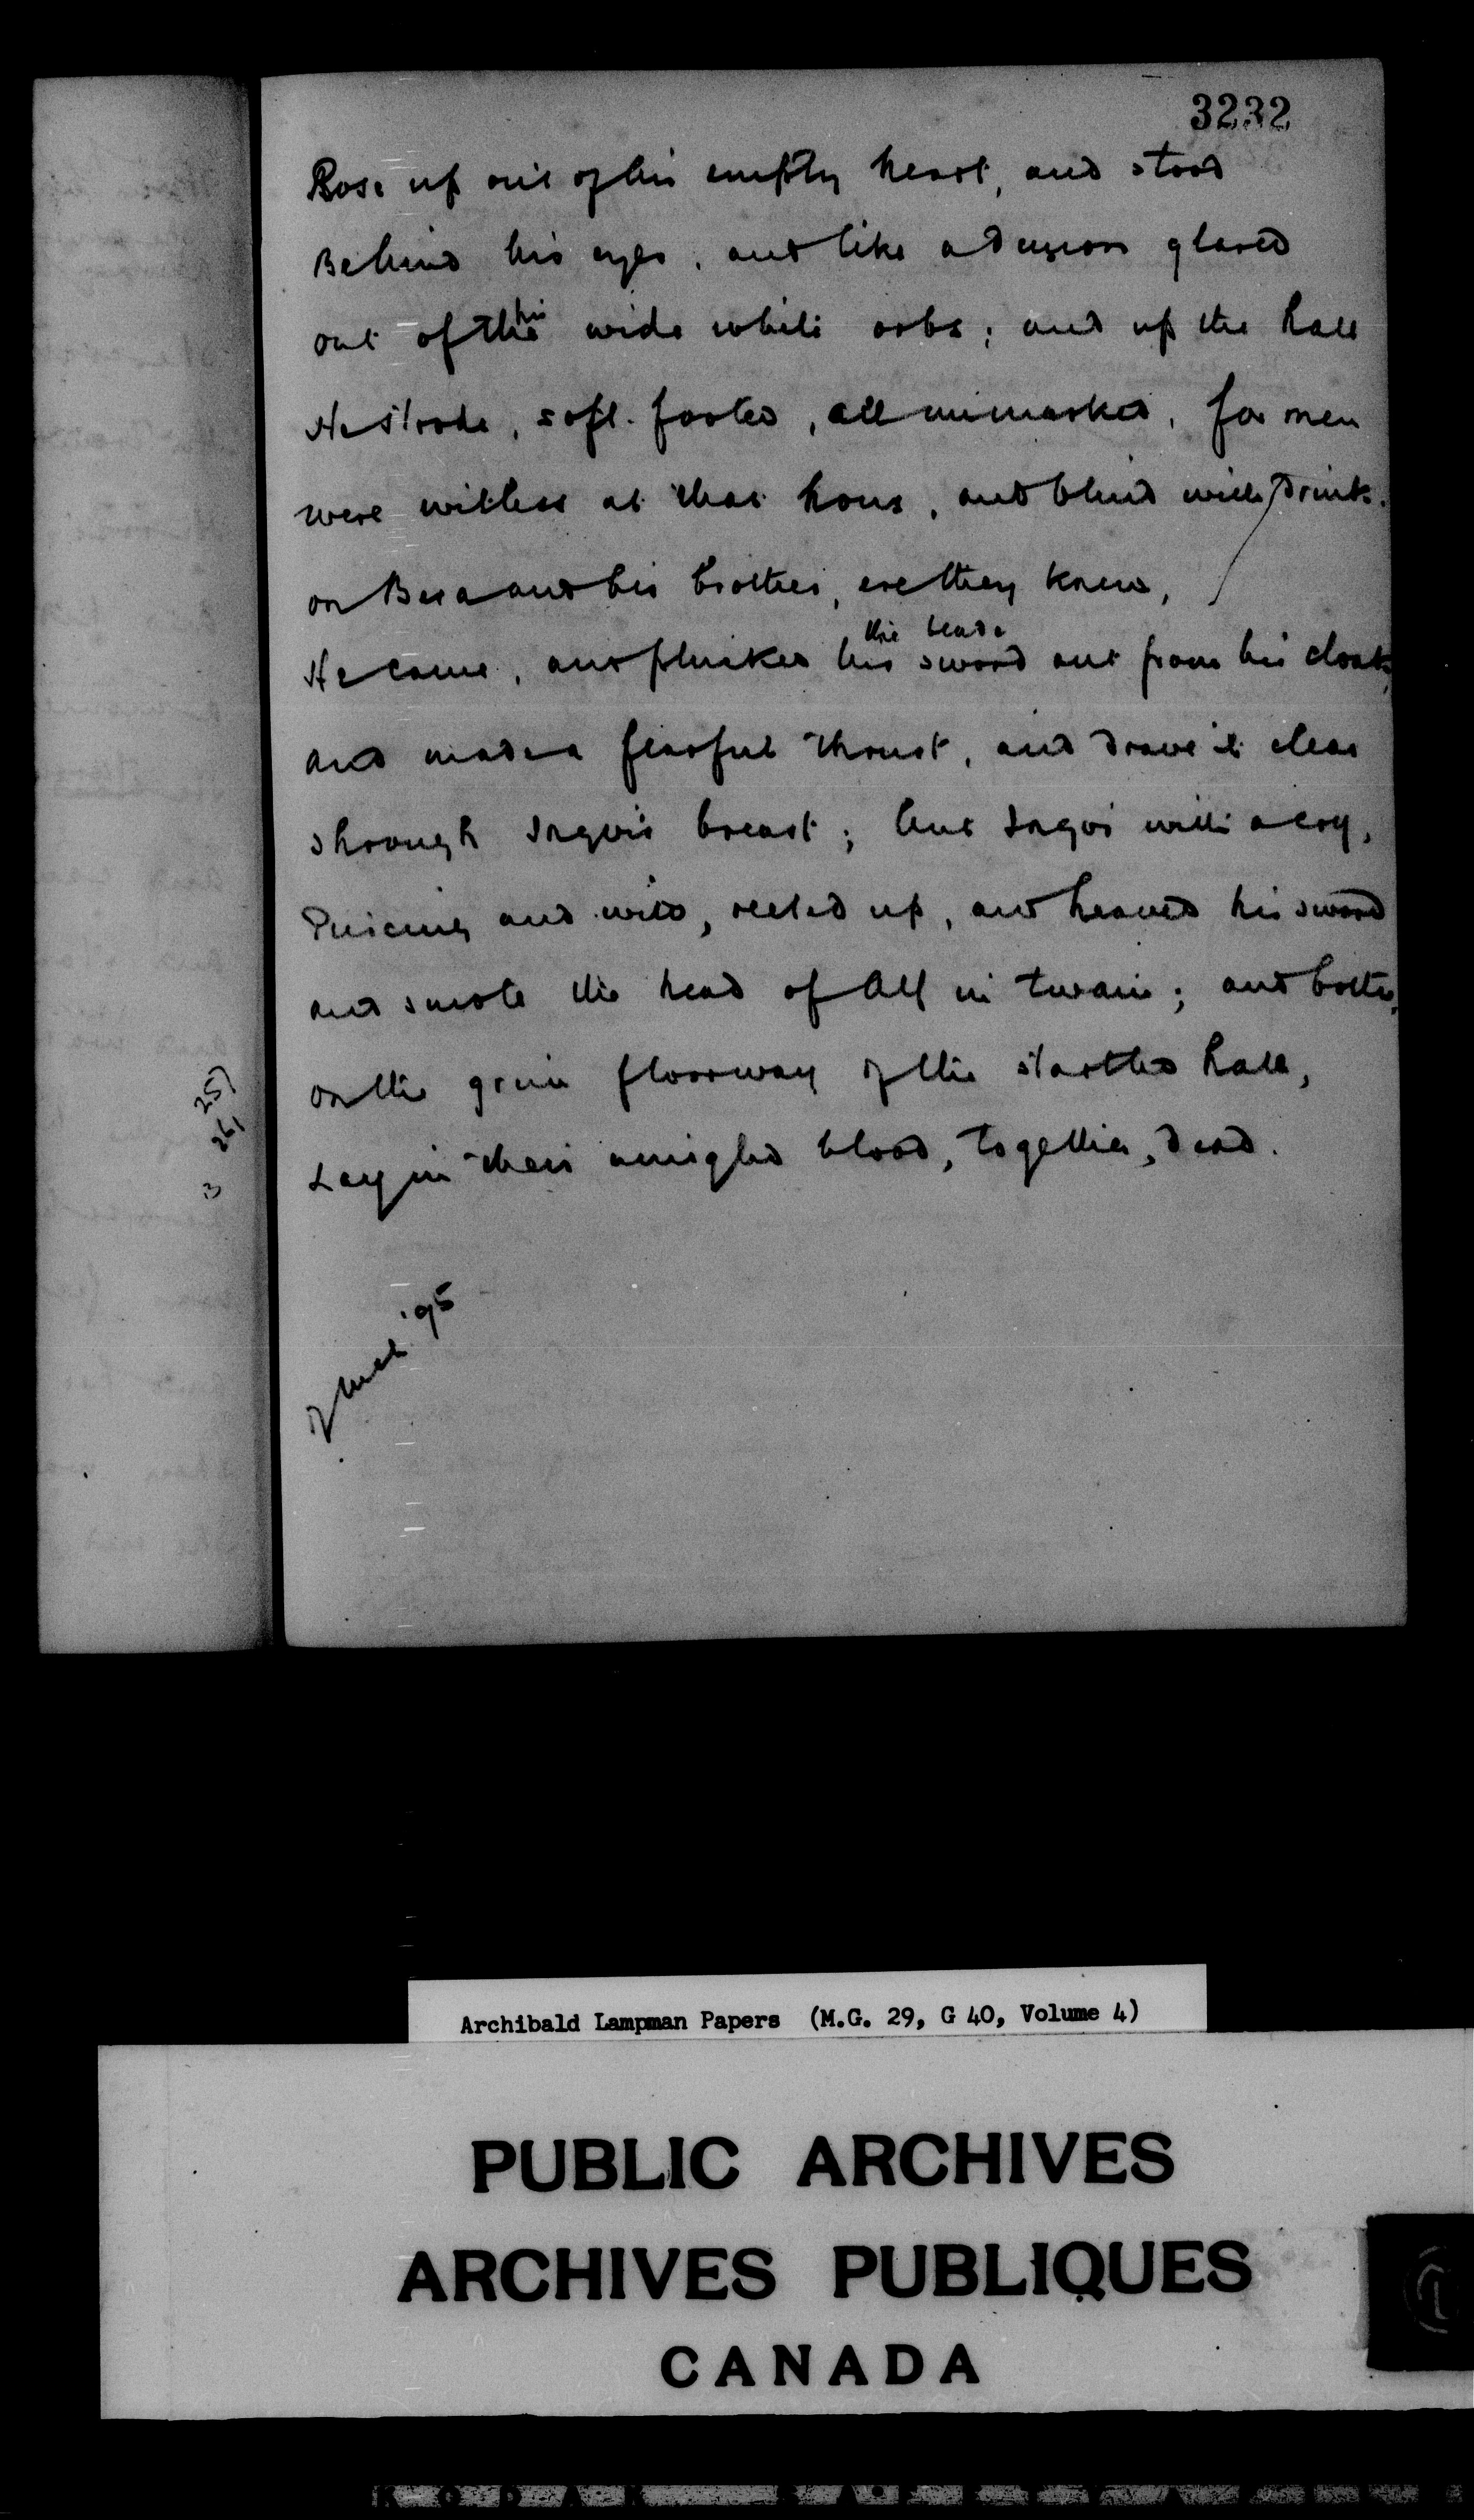 3232
Rose up out of his empty heart, and stood
Behind his eyes, and like a demon glared
out of their wide white orbs; and up the hall
He strode, soft-footed, all unmarked, for men
were witless at that hour, and blind with drink.
on Bera and his brother, ere they knew,
the blade
He came, and plucked his sword out from his cloak,
and made a fearful thrust, and drave it clear
Through Ingvi's breast; but Ingvi with a cry,
Piercing and wild, reeled up, and heaved his sword
and smote the head of Alf in twain; and both,
on the grim floorway of the startled hall,
Lay in their mingled blood, together, dead.
257
261
3
'95
Archibald Lampman Papers (M.G. 29, G 40, Volume 4)
PUBLIC ARCHIVES
ARCHIVES PUBLIQUES
CANADA